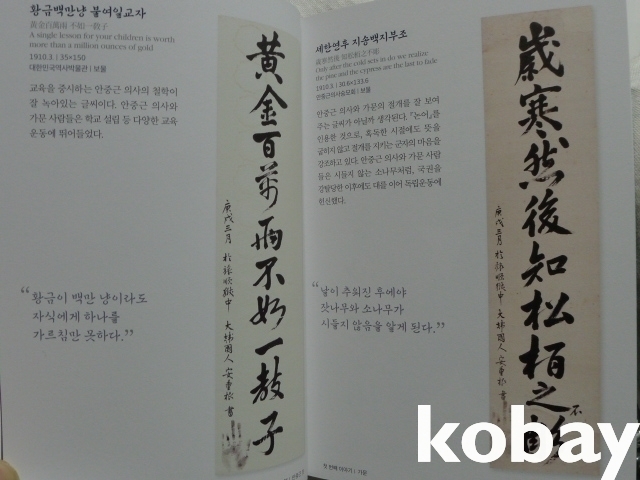 황금백만냥 불여일교자
黃金百萬兩 不如一敎子
A single lesson for your children is worth
more than a million ounces of gold
1910.3 | 35×150
대한민국역사박물관 | 보물
교육을 중시하는 안중근 의사의 철학이
잘 녹아있는 글씨이다. 안중근 의사와
가문 사람들은 학교 설립 등 다양한 교육
운동에 뛰어들었다.
“황금이 백만 냥이라도
자식에게 하나를
가르침만 못하다.”
黃金百萬兩不如一敎子
庚戌三月 於旅順獄中 大韓國人 安重根 書
세한연후 지송백지부조
歲寒然後 知松栢之不彫
Only after the cold sets in do we realize
the pine and the cypress are the last to fade
1910.3 | 30.6×133.6
안중근의사숭모회 | 보물
안중근 의사와 가문의 절개를 잘 보여
주는 글씨가 아닐까 생각된다. 『논어』를
인용한 것으로, 혹독한 시절에도 뜻을
굽히지 않고 절개를 지키는 군자의 마음을
강조하고 있다. 안중근 의사와 가문 사람
들은 시들지 않는 소나무처럼, 국권을
강탈당한 이후에도 대를 이어 독립운동에
헌신했다.
“날이 추워진 후에야
잣나무와 소나무가
시들지 않음을 알게 된다.”
歲寒然後知松栢之不彫
庚戌三月 於旅順獄中 大韓國人 安重根 書
첫 번째 이야기 / 가문
kobay